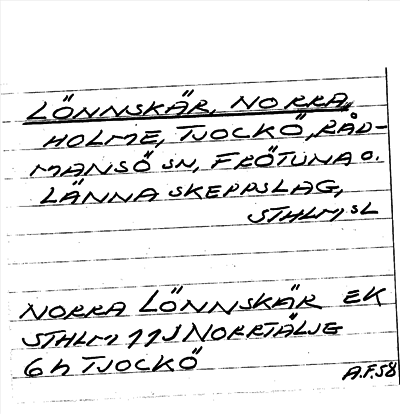 LÖNNSKÄR, NORRA,
HOLME, TJOCKÖ, RÅD-
MANSÖ SN, FRÖTUNA O.
LÄNNA SKEPPSLAG,
STHLM SL
NORRA LÖNNSKÄR EK
STHLM 11J NORRTÄLJE
6h TJOCKÖ
A.F.58